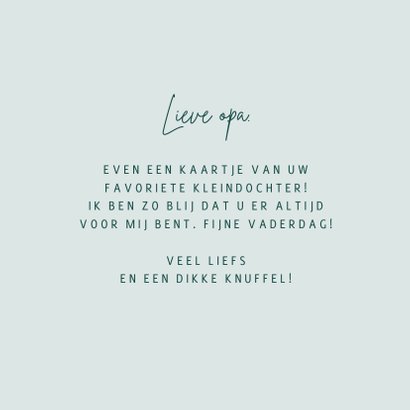 Lieve opa.
EVEN EEN KAARTJE VAN UW
FAVORIETE KLEINDOCHTER!
IK BEN ZO BLIJ DAT U ER ALTIJD
VOOR MIJ BENT. FIJNE VADERDAG!
VEEL LIEFS
EN EEN DIKKE KNUFFEL!